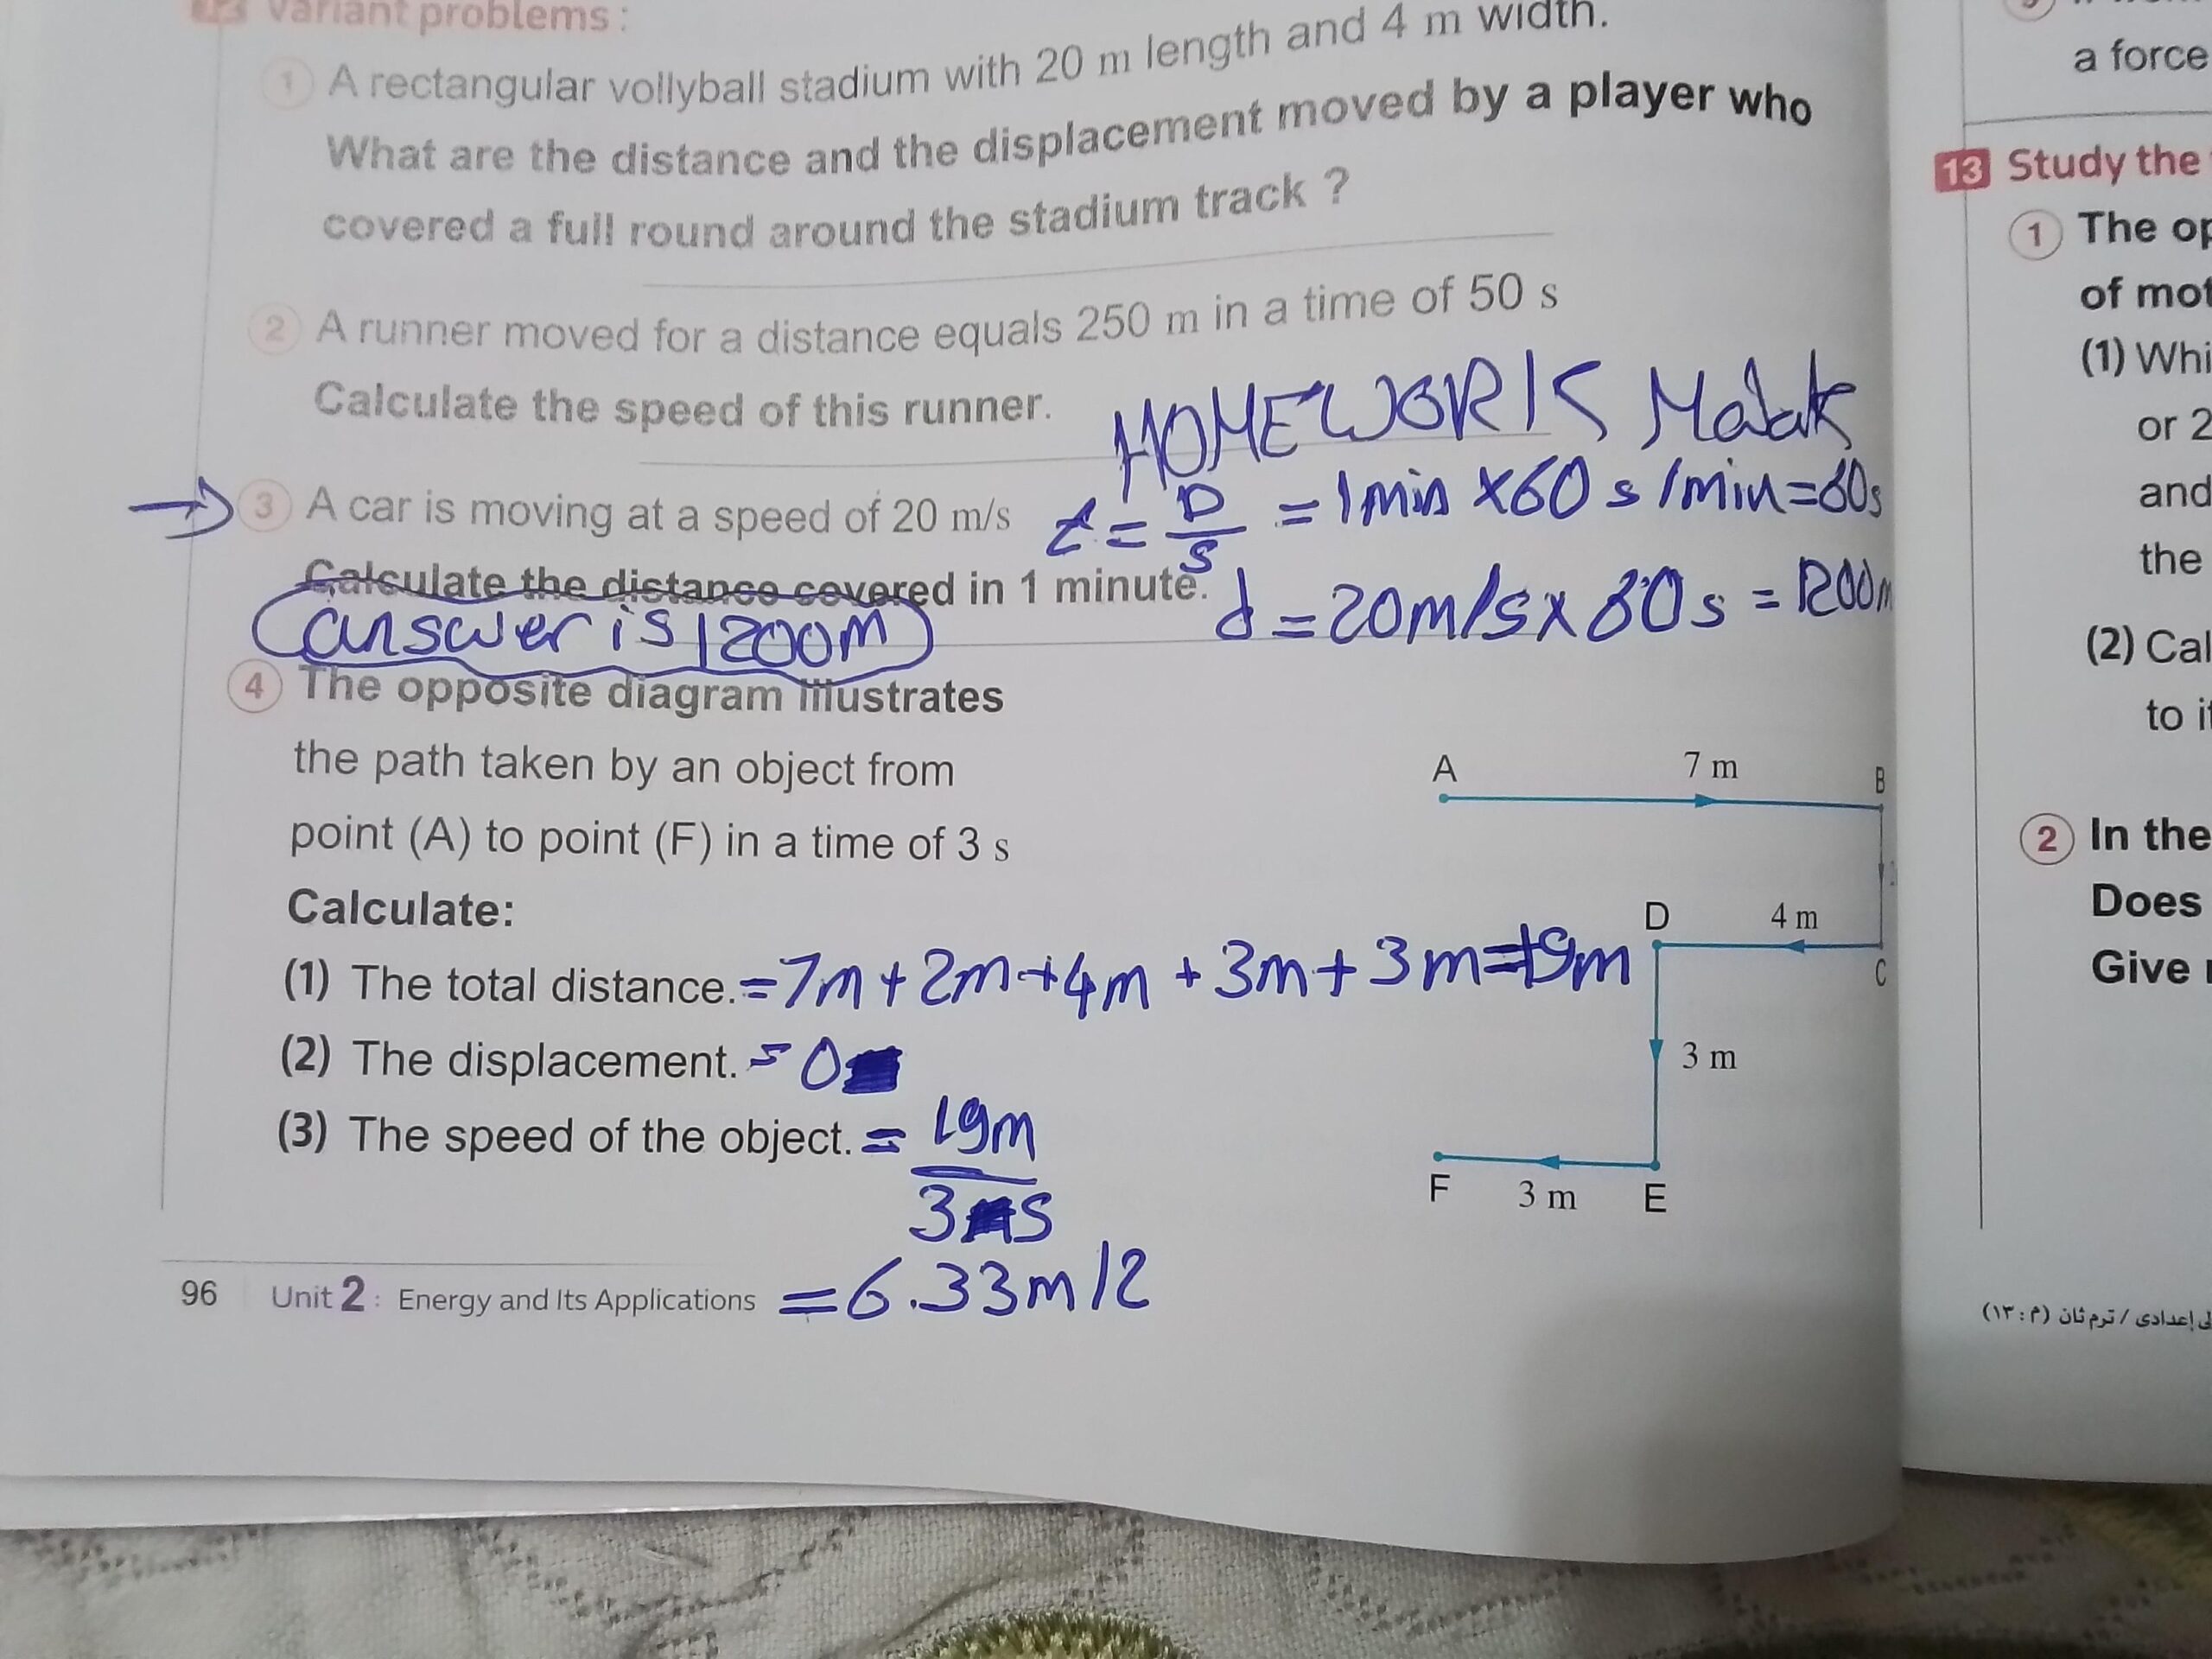 Variant problems :
1 A rectangular vollyball stadium with 20 m length and 4 m width.
What are the distance and the displacement moved by a player who
covered a full round around the stadium track ?
2 A runner moved for a distance equals 250 m in a time of 50 s
Calculate the speed of this runner.
HOMEWORK Malak
3 A car is moving at a speed of 20 m/s
t = D/S = 1min ×60 s /min=60s
Calculate the distance covered in 1 minute.
d = 20m/s × 60 s = 1200m
answer is 1200m
4 The opposite diagram illustrates
the path taken by an object from
point (A) to point (F) in a time of 3 s
Calculate:
(1) The total distance. =7m + 2m +4m + 3m + 3m=19m
(2) The displacement. = 0
(3) The speed of the object. = 19m
3 s
= 6.33m/2
A 7 m B
D 4 m
C
3 m
F 3 m E
96 Unit 2 : Energy and Its Applications
a force
13 Study the
1 The op
of mot
(1) Whi
or 2
and
the
(2) Cal
to it
2 In the
Does
Give
إعدادى / ترم ثان (م : ١٣)